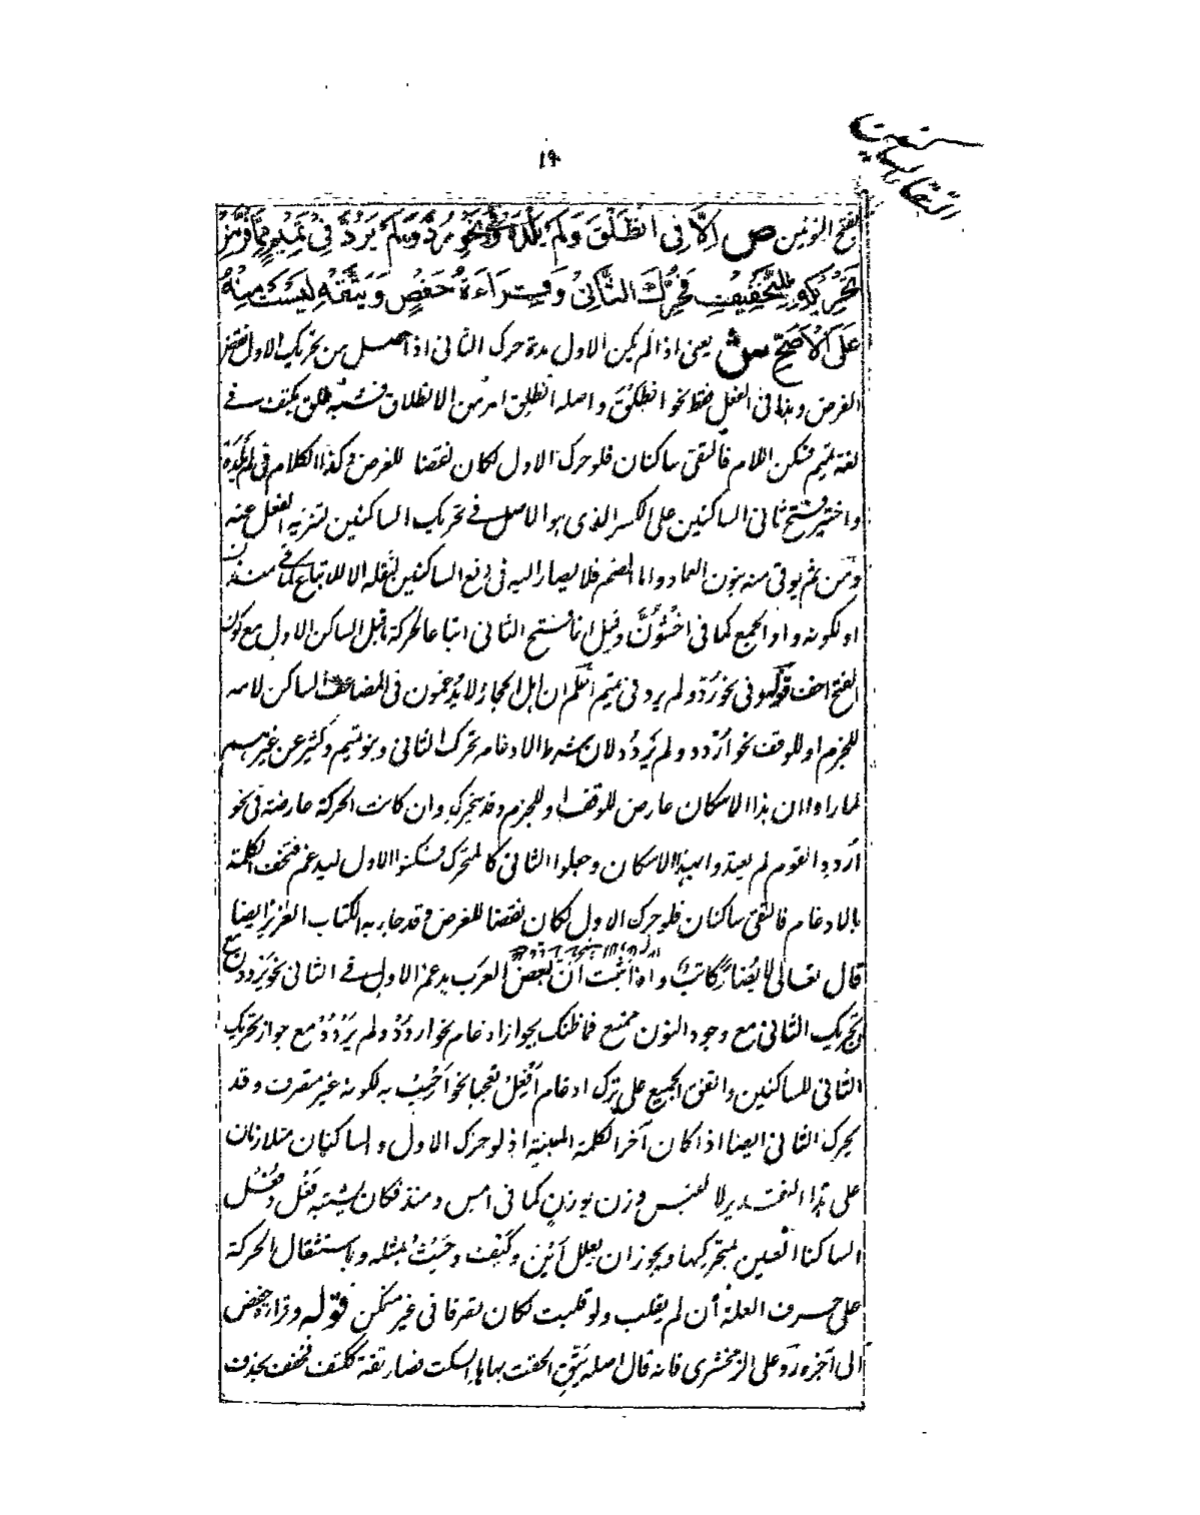 التقاء الساكنين
١٩
بفتح النونين ص اِلَّا فِى اِنْطَلْقَ وَلَمْ يَلْدَهُ وَنَحْوِ رُدَّ وَلَمْ يَرُدَّ فِىْ تَمِيْمٍ مِمَّا فُرَّ مِنْ
تَحْرِيْكِهٖ لِلتَّخْفِيْفِ فَحُرِّكَ الثَّانِىْ وَقِرَاءَةُ حَفْصٍ وَيَتَّقْهِ لَيْسَتْ مِنْهُ
عَلَى الْاَصَحِّ ش يعنى اذا لم يكن الاول مدة حرك الثانى اذا حصل من تحريك الاول نقض
الغرض وهذا فى الفعل فقط نحو انطلْقَ واصله انطلِق امر من الانطلاق فشبه طلق بكتف فى
لغة تميم فسكن اللام فالتقى ساكنان فلو حرك الاول لكان نقضا للغرض وكذا الكلام فى لم يَلْدَهُ
واختير فتح ثانى الساكنين على الكسر الذى هو الاصل فى تحريك الساكنين لتنزيه الفعل عنه
ومن ثم يوقى منه بنون العماد واما الضم فلا يصار اليه فى دفع الساكنين لثقله الا للاتباع كما فى منذ
او لكونه واو الجمع كما فى اخشَوُنَّ وقيل انما فتح الثانى اتباعا لحركة ما قبل الساكن الاول مع كون
الفتح اخف قوله وفى نحو رُدَّ ولم يرد فى تميم اعلم ان اهل الحجاز لا يدغمون فى المضاعف الساكن لامه
للجزم او للوقف نحو اردد ولم يَردُد لان شرط الادغام تحرك الثانى وبنو تميم وكثير عن غيرهم
لما راوا ان هذا الاسكان عارض للوقف او للجزم وقد يتحرك وان كانت الحركة عارضة فى نحو
اُردد القوم لم يعتدوا بهذا الاسكان وجعلوا الثانى كالمتحرك فسكنوا الاول ليدغم فتخف الكلمة
بالادغام فالتقى ساكنان فلو حرك الاول لكان نقضا للغرض وقد جاء به الكتاب العزيز ايضا
قال تعالى لا يُضَارَّ كَاتِبٌ واذا ثبت اَنّ بعض العرب يدغم الاول فى الثانى نحو يرددن مع
تحريك الثانى مع وجود النون ممتنع فما ظنك بجواز ادغام نحو اردُدْ ولم يَرْدُدْ مع جواز تحريك
الثانى للساكنين واتفق الجميع على ترك ادغام اَفْعِلْ تعجبا نحو اَحْبِبْ به لكونه غير متصرف وقد
يحرك الثانى ايضا اذا كان آخر الكلمة المبنية اذ لو حرك الاول والساكنان متلازمان
على هذا التقدير لالتبس وزن بوزن كما فى امس ومنذ فكان يشتبه فَعْل وفُعْل
الساكنا العين بمتحركيها ويجوز ان يعلل اَيْنَ وكَيْفَ وحَيْثُ بمثله وباستثقال الحركة
على حرف العلة اُن لم يقلب ولو قلبت لكان تصرفا فى غير متمكن قوله وقراءة حفص
الى آخره ردّ على الزمخشرى فانه قال اصله يَتَّقِ الحقت بها هاء السكت فصار تقه ككتف فخفف بحذف